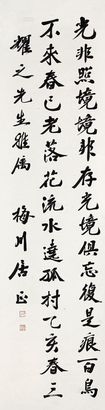 光非照境境非存光境俱忘復是痕百鳥
不来春已老落花流水遶孤村乙亥春三
耀之先生雅属 梅川居正